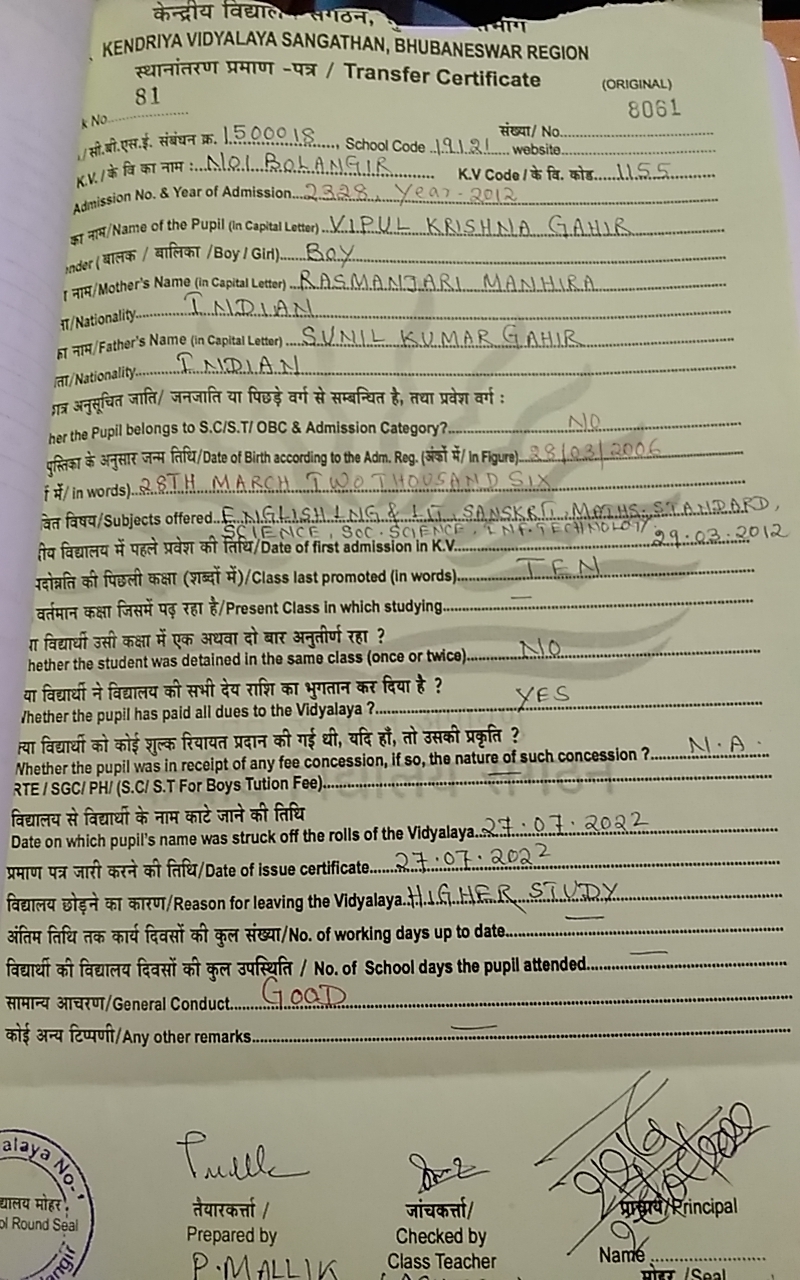 केन्द्रीय विद्यालय संगठन,
KENDRIYA VIDYALAYA SANGATHAN, BHUBANESWAR REGION
स्थानांतरण प्रमाण -पत्र / Transfer Certificate
(ORIGINAL)
k No. 81
8061
/सी.बी.एस.ई. संबंधन क्र. 1500018, School Code 19121 संख्या/ No. website
K.V./के वि का नाम : NO1 BOLANGIR K.V Code/के वि. कोड. 1155
Admission No. & Year of Admission 2328, Year-2012
का नाम/Name of the Pupil (in Capital Letter) VIPUL KRISHNA GAHIR
nder (बालक / बालिका /Boy / Girl) BOY
नाम/Mother's Name (in Capital Letter) RASMANJARI MANHIRA
ता/Nationality INDIAN
का नाम/Father's Name (in Capital Letter) SUNIL KUMAR GAHIR
ता/Nationality INDIAN
छात्र अनुसूचित जाति/ जनजाति या पिछड़े वर्ग से सम्बन्धित है, तथा प्रवेश वर्ग :
her the Pupil belongs to S.C/S.T/ OBC & Admission Category? NO
पुस्तिका के अनुसार जन्म तिथि/Date of Birth according to the Adm. Reg. (अंकों में/ in Figure) 28/03/2006
में/ in words) 28TH MARCH TWO THOUSAND SIX
वित विषय/Subjects offered ENGLISH LNG & LIT, SANSKRT, MATHS-STANDARD,
SCIENCE, SOC. SCIENCE, INF. TECHNOLOGY
ीय विद्यालय में पहले प्रवेश की तिथि/Date of first admission in K.V. 29.03.2012
पदोन्नति की पिछली कक्षा (शब्दों में)/Class last promoted (in words) TEN
वर्तमान कक्षा जिसमें पढ़ रहा है/Present Class in which studying —
या विद्यार्थी उसी कक्षा में एक अथवा दो बार अनुतीर्ण रहा ?
hether the student was detained in the same class (once or twice) NO
या विद्यार्थी ने विद्यालय की सभी देय राशि का भुगतान कर दिया है ?
Whether the pupil has paid all dues to the Vidyalaya ? YES
क्या विद्यार्थी को कोई शुल्क रियायत प्रदान की गई थी, यदि हाँ, तो उसकी प्रकृति ?
Whether the pupil was in receipt of any fee concession, if so, the nature of such concession ? N.A.
RTE / SGC/ PH/ (S.C/ S.T For Boys Tution Fee) —
विद्यालय से विद्यार्थी के नाम काटे जाने की तिथि
Date on which pupil's name was struck off the rolls of the Vidyalaya 27.07.2022
प्रमाण पत्र जारी करने की तिथि/Date of issue certificate 27.07.2022
विद्यालय छोड़ने का कारण/Reason for leaving the Vidyalaya HIGHER STUDY
अंतिम तिथि तक कार्य दिवसों की कुल संख्या/No. of working days up to date —
विद्यार्थी की विद्यालय दिवसों की कुल उपस्थिति / No. of School days the pupil attended —
सामान्य आचरण/General Conduct GOOD
कोई अन्य टिप्पणी/Any other remarks —
alaya No-1
द्यालय मोहर
ol Round Seal
तैयारकर्त्ता / जांचकर्त्ता/ प्राचार्य/Principal
Prepared by Checked by Name
P. MALLIK Class Teacher मोहर /Seal